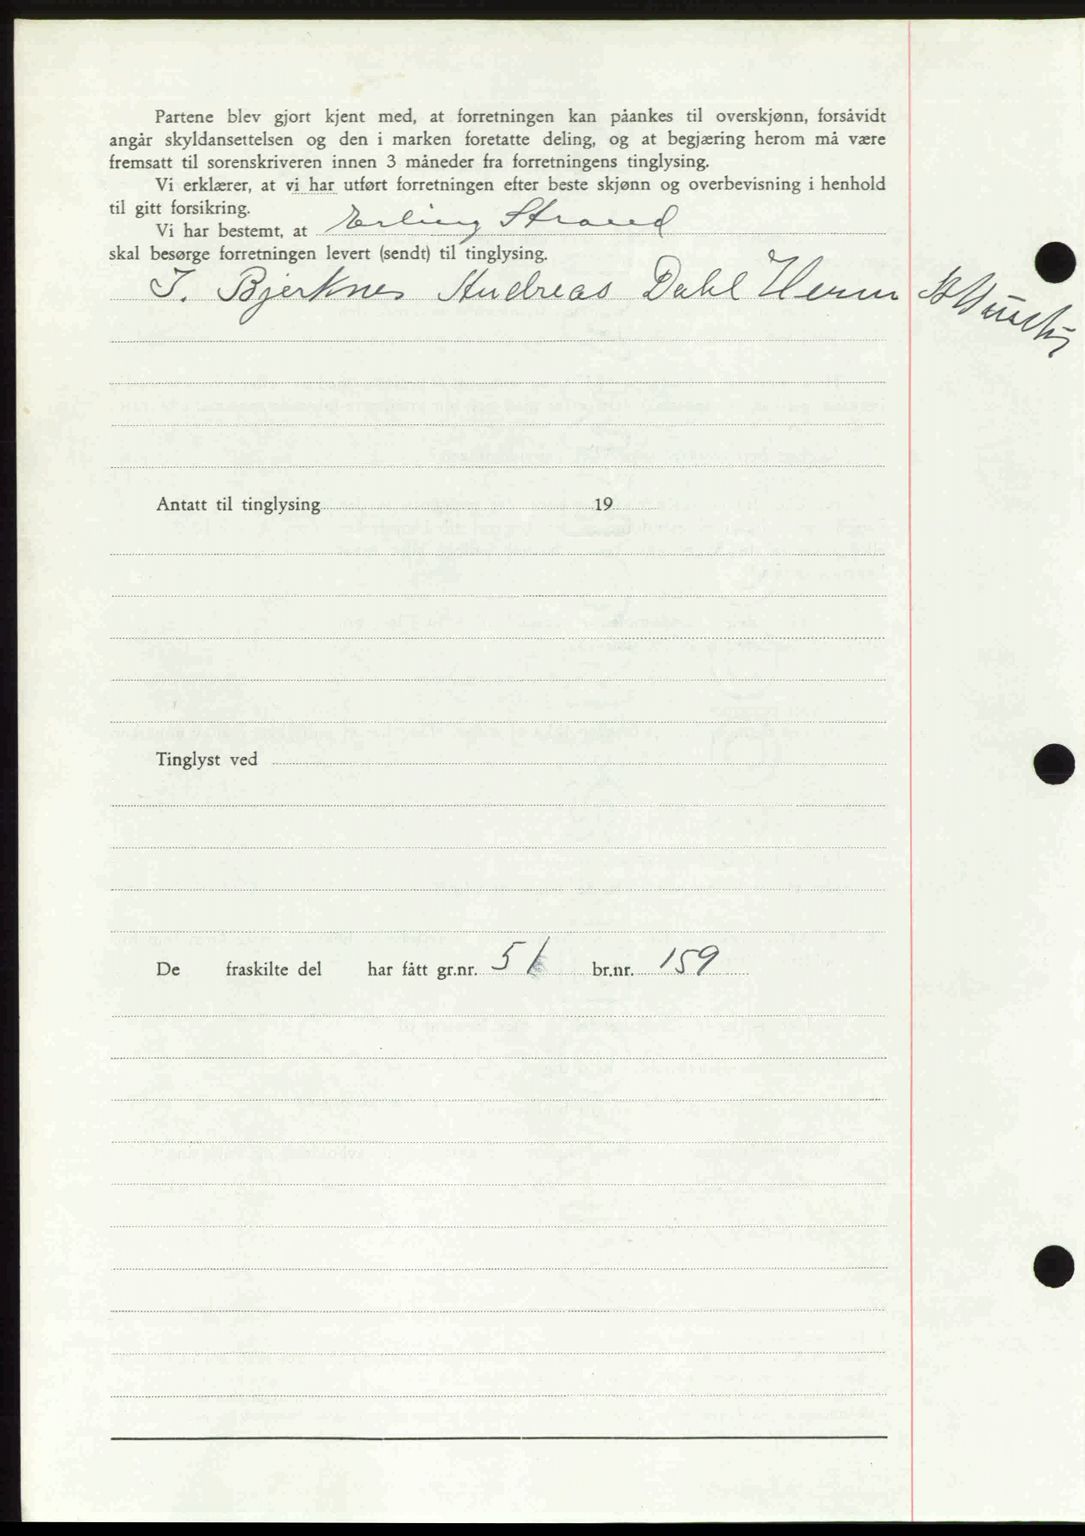 Partene blev gjort kjent med, at forretningen kan påankes til overskjønn, forsåvidt
angår skyldansettelsen og den i marken foretatte deling, og at begjæring herom må være
fremsatt til sorenskriveren innen 3 måneder fra forretningens tinglysing.
Vi erklærer, at vi har utført forretningen efter beste skjønn og overbevisning i henhold
til gitt forsikring.
Vi har bestemt, at Erling Strand
skal besørge forretningen levert (sendt) til tinglysing.
J. Bjerknes Andreas Dahl Herm
Antatt til tinglysing 19
Tinglyst ved
De fraskilte del har fått gr.nr. 51 br.nr. 159